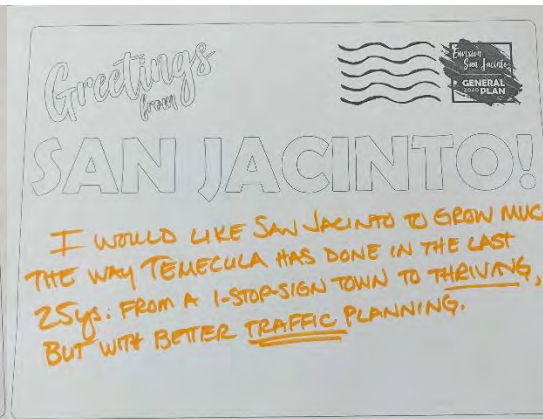 Greetings
from
Envision
San Jacinto
GENERAL
2040 PLAN
SAN JACINTO!
I WOULD LIKE SAN JACINTO TO GROW MUC
THE WAY TEMECULA HAS DONE IN THE LAST
25ys. FROM A 1-STOP-SIGN TOWN TO THRIVING,
BUT WITH BETTER TRAFFIC PLANNING.